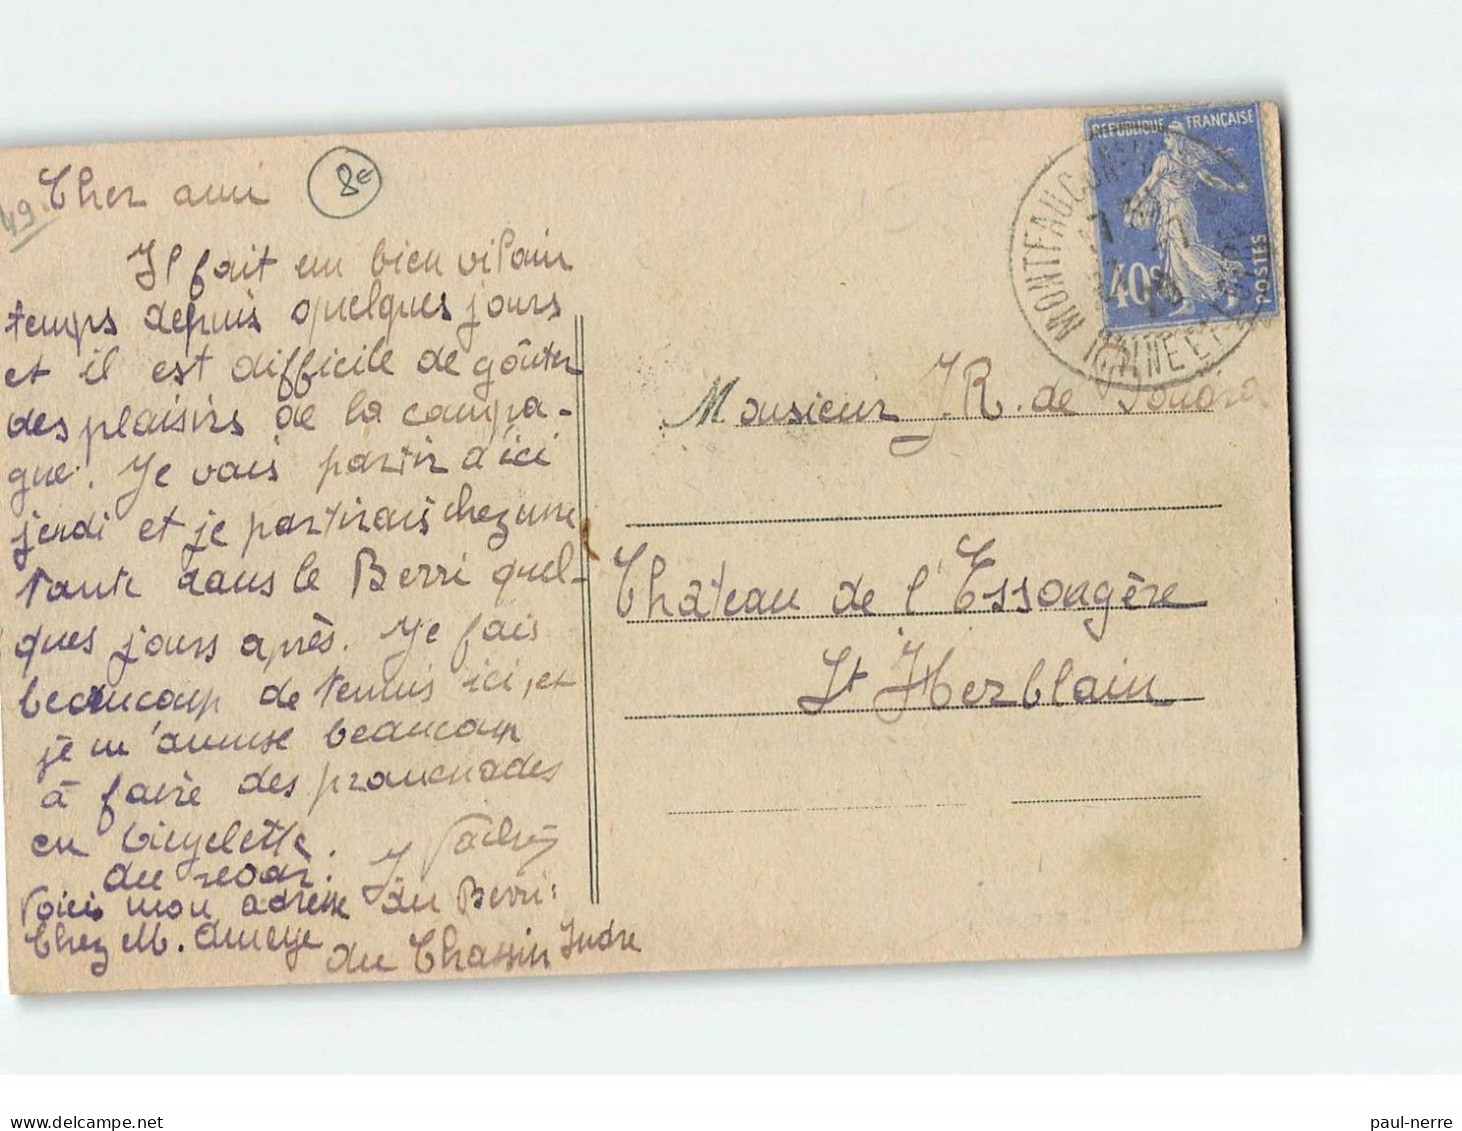 49
Cher ami
8€
Il fait un bien vilain
temps depuis quelques jours
et il est difficile de goûter
des plaisirs de la campa-
gne. Je vais partir d'ici
jeudi et je partirais chez une
tante dans le Berri quel-
ques jours après. Je fais
beaucoup de tennis ici, et
je m'amuse beaucoup
à faire des promenades
en bicyclette.
au revoir. J
Voici mon adresse du Berri:
Chez M. Ameye
du Chassin Indre
REPUBLIQUE FRANÇAISE
40c
POSTES
MONTFAUCON
MAINE ET LOIRE
Monsieur J R. de
Château de l'Essongère
St Herblain
paul-nerre